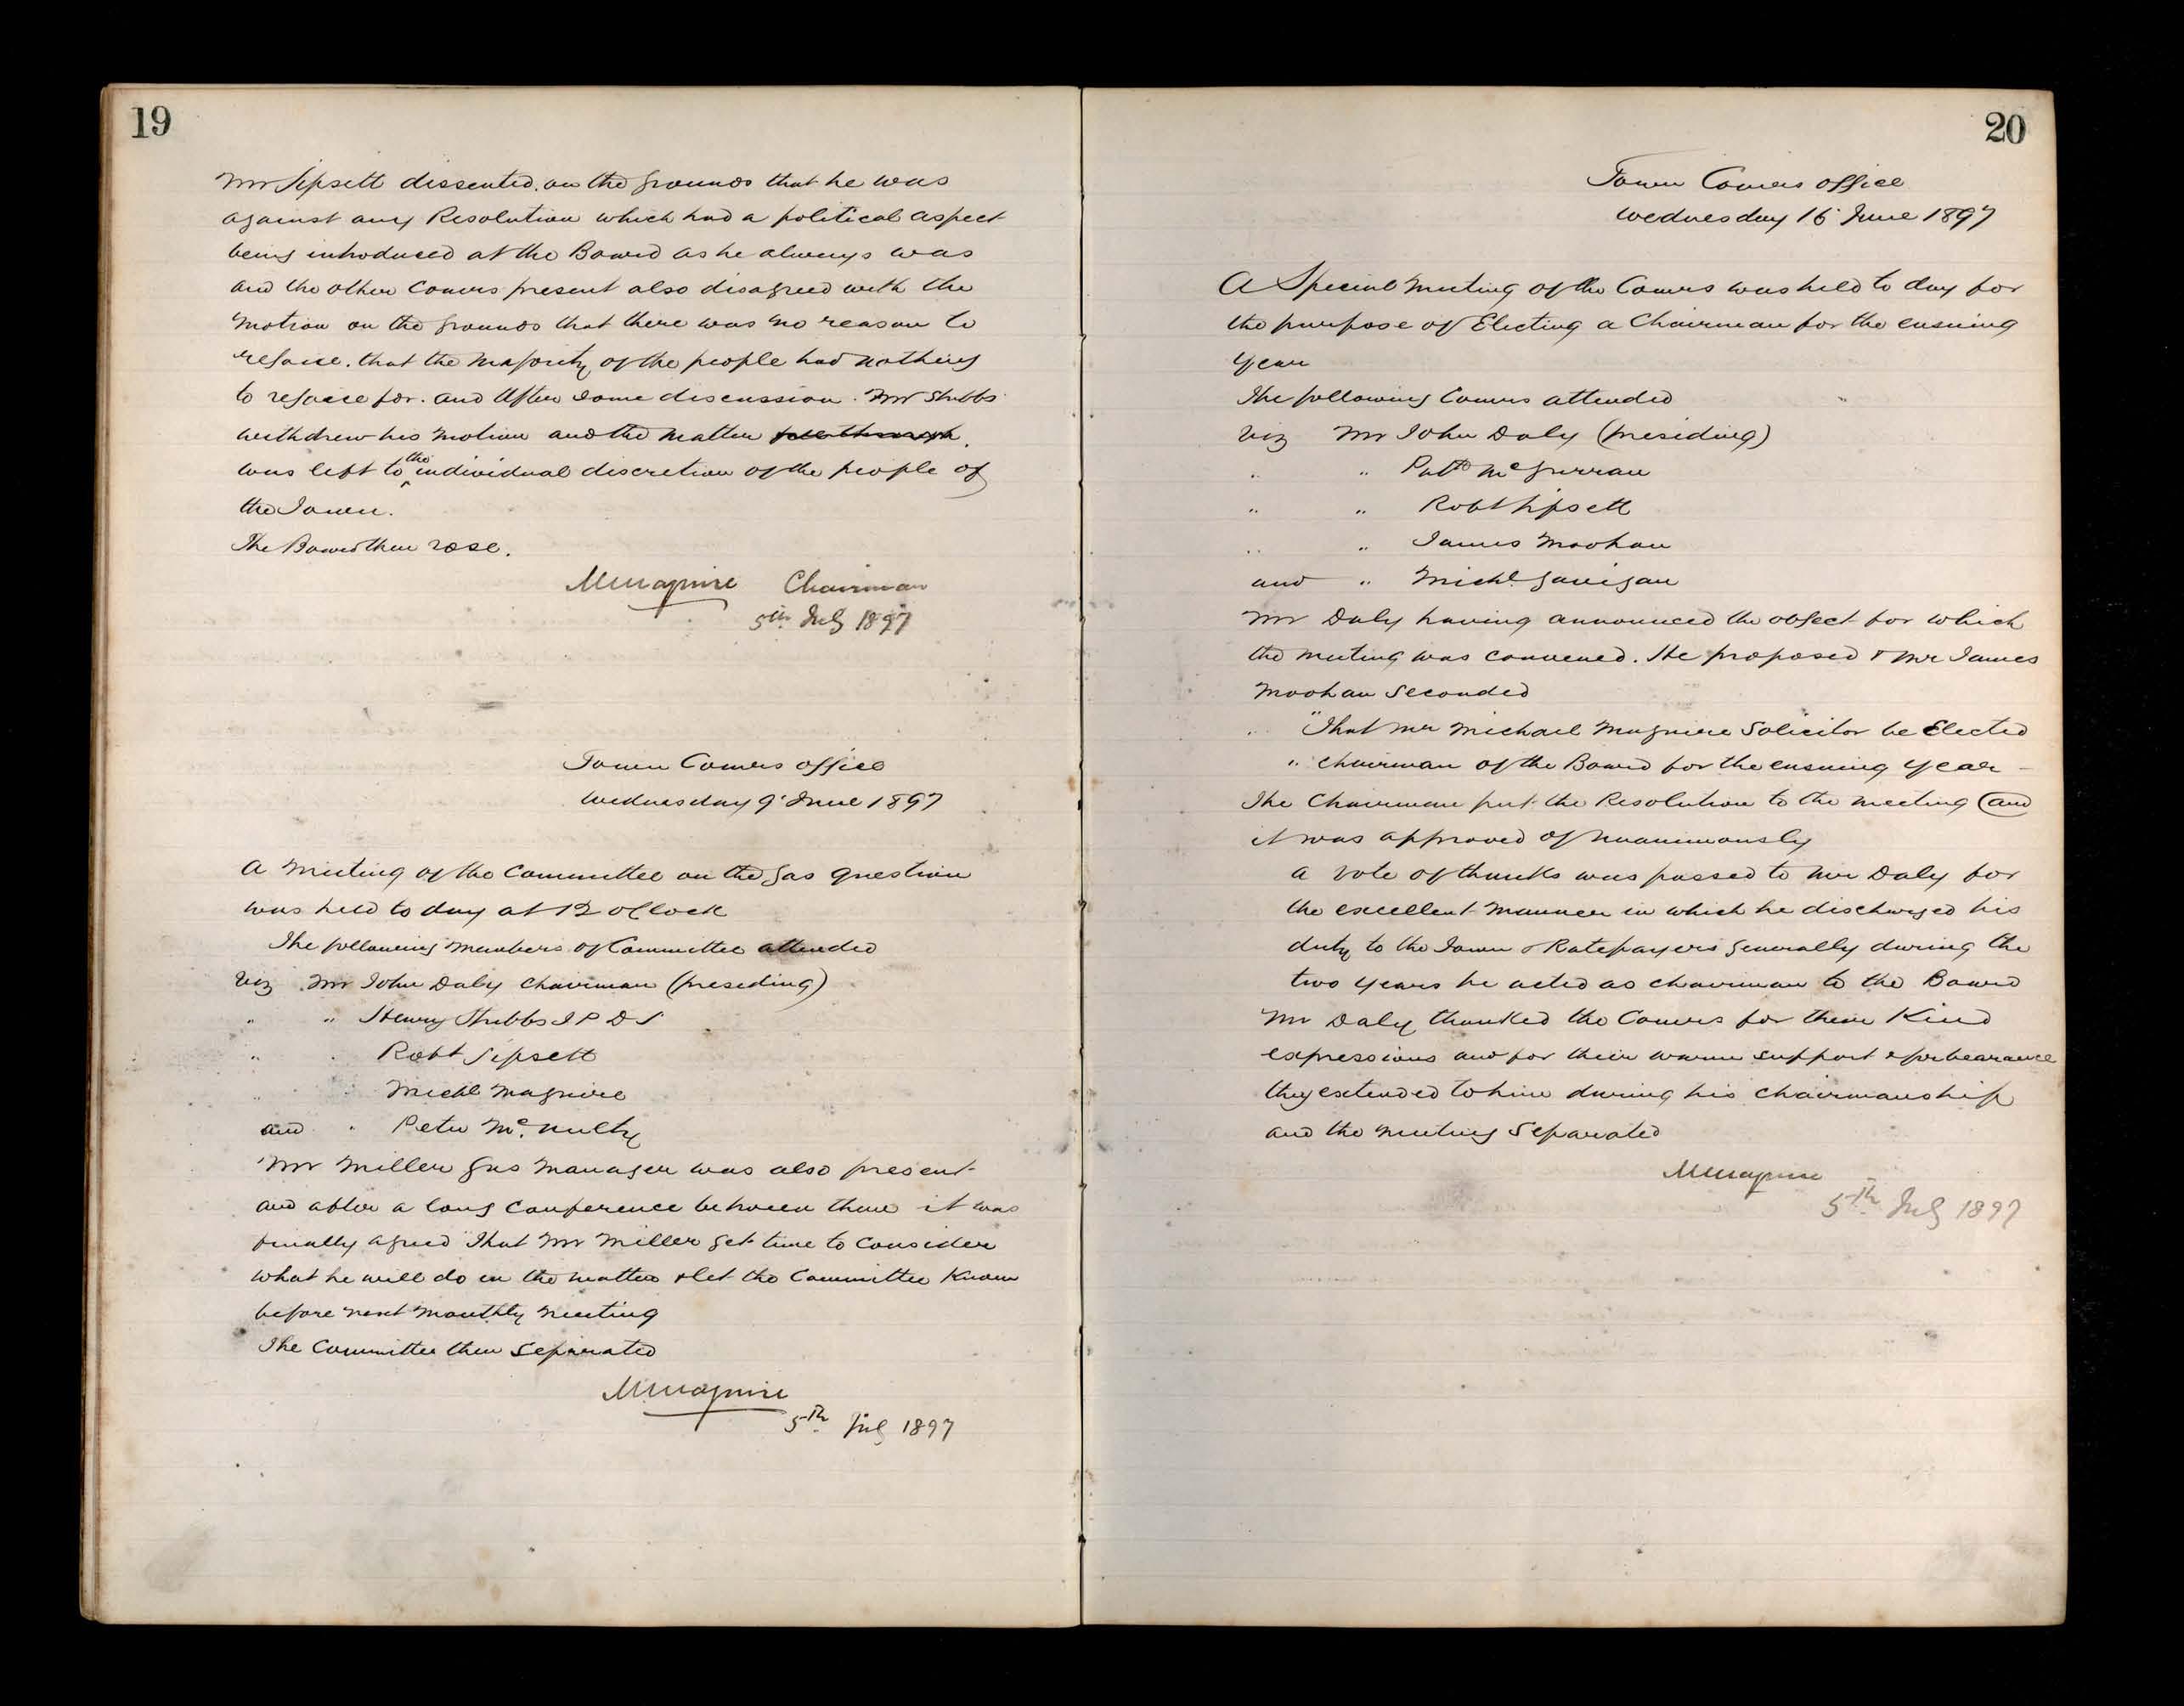 19
Mr Lipsett dissented. on the grounds that he was
against any Resolution which had a political aspect
being introduced at the Board as he always was
and the other Comers present also disagreed with the
motion on the grounds that there was no reason to
rejoice. that the majority of the people had nothing
to rejoice for. and After some discussion. Mr Stubbs
withdrew his motion and the matter fell through.
was left to the individual discretion of the people of
the Town.
The Board then rose.
M Maguire Chairman
5th July 1897
Town Comers office
Wednesday 9 June 1897
A Meeting of the Committee on the Gas question
was held to day at 12 oClock
The following members of Committee attended
Viz Mr John Daly Chairman (presiding)
" " Henry Stubbs J P D L
" " Robt Lipsett
" Michl Maguire
and " Peter Mc. Nulty
Mr Miller Gas Manager was also present
and after a long Conference between them it was
finally agreed That Mr Miller get time to consider
what he will do in the matter & let the Committee Know
before next monthly meeting
The Committee then Separated
M Maguire
5th July 1897
20
Town Comers office
Wednesday 16 June 1897
A Special Meeting of the Comers was held to day for
the purpose of Electing a Chairman for the ensuing
year
The following Comers attended
Viz Mr John Daly (presiding)
" " Patk McGurran
" " Robt Lipsett
" " James Moohan
and " Michl Gavigan
Mr Daly having announced the object for which
the meeting was convened. He proposed & Mr James
Moohan Seconded
"That Mr Michael Maguire Solicitor be Elected
" Chairman of the Board for the ensuing year
The Chairman put the Resolution to the meeting and
it was approved of unanimously
A vote of thanks was passed to Mr Daly for
the excellent manner in which he discharged his
duty to the Town & Ratepayers generally during the
two years he acted as chairman to the Board
Mr Daly thanked the Comers for their Kind
expressions and for their warm support & forbearance
they extended to him during his chairmanship
and the meeting Separated
M Maguire
5th July 1897